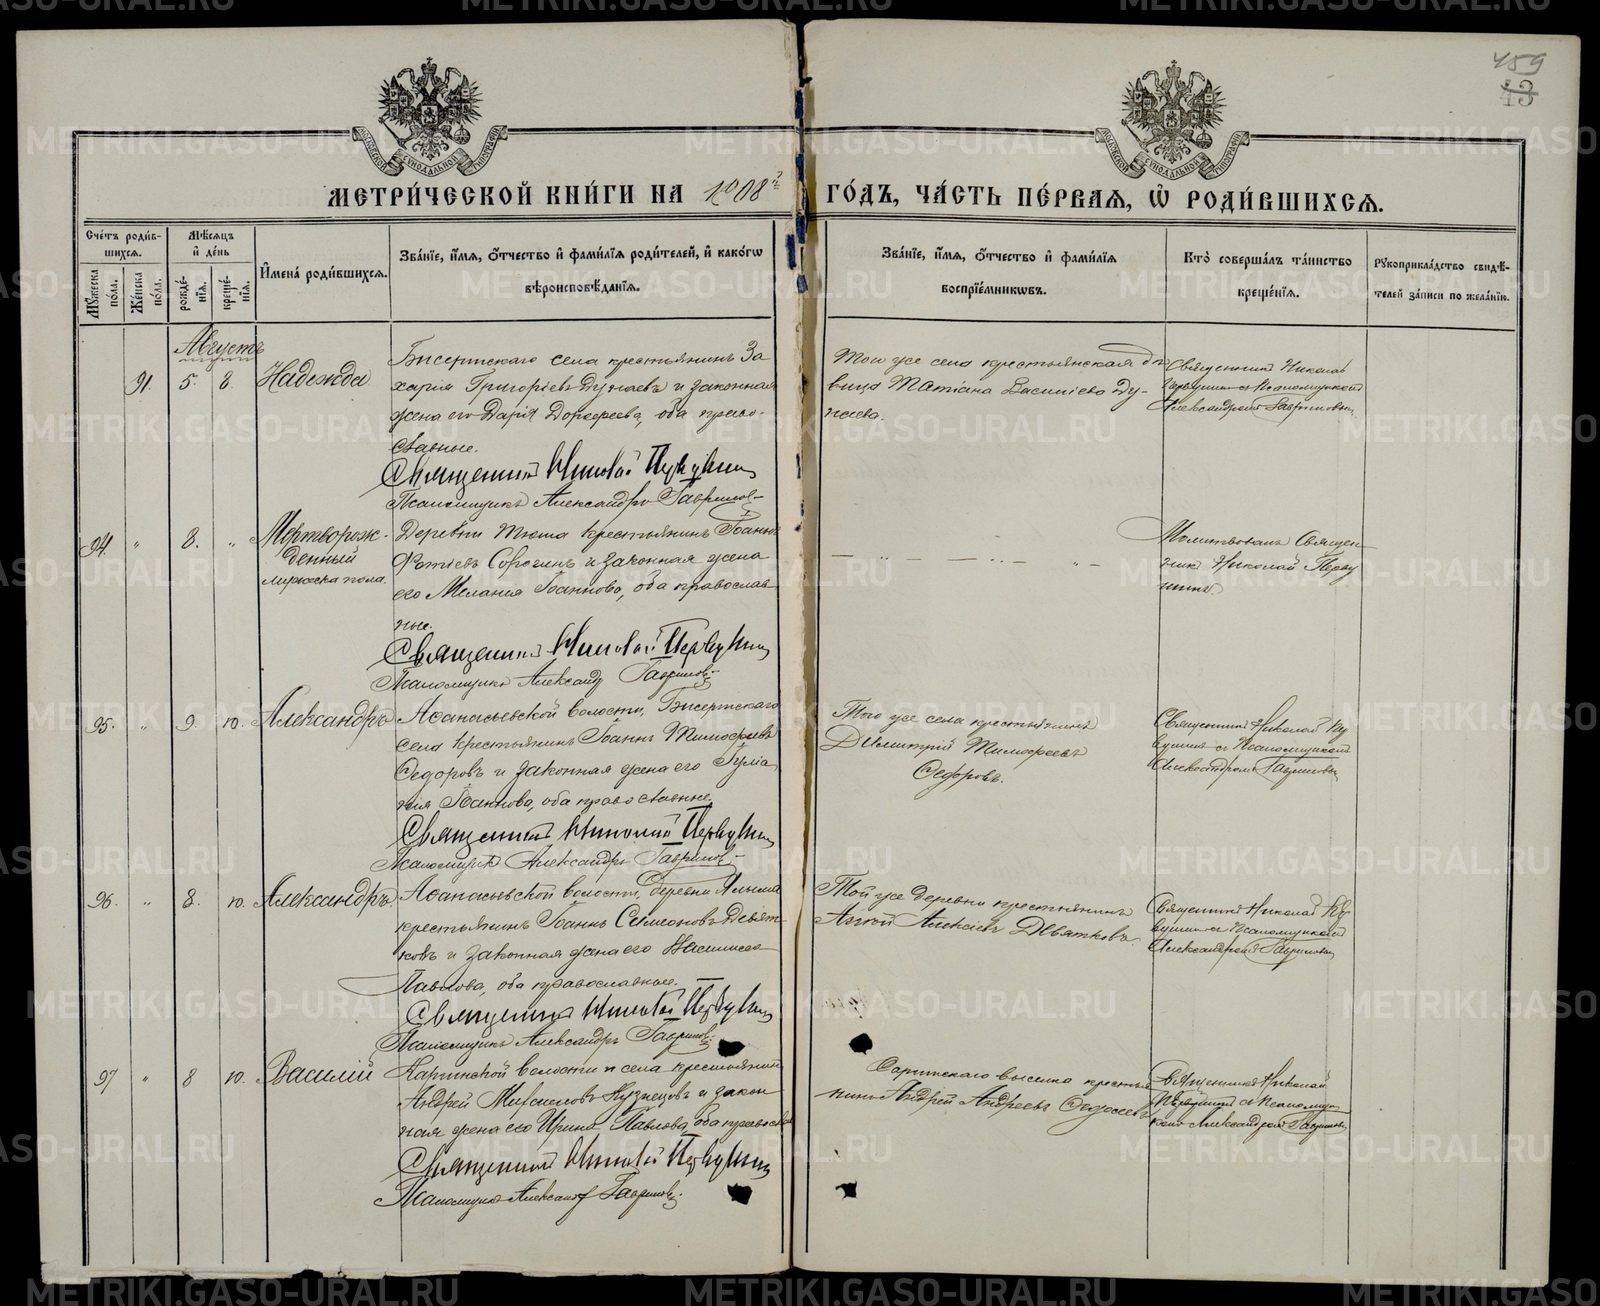 459
43
МОСКОВСКОЙ СѴНОДАЛЬНОЙ ТИПОГРАФІИ
МЕТРИ́ЧЕСКОЙ КНИ́ГИ НА 1908 ГО́ДЪ, ЧА́СТЬ ПЕ́РВАЯ, Ѽ РОДИ́ВШИХСЯ.
Сче́тъ роди́в-
шихся.
Мѹ́жеска по́ла.
Же́нска по́ла.
Мѣ́сяцъ и де́нь
рожде́-нія.
креще́-нія.
Имена̀ роди́вшихся.
Зва́ніе, и́мя, о́тчество и фами́лія роди́телей, и како́гω
вѣроисповѣ́данія.
Зва́ніе, и́мя, о́тчество и фами́лія
воспріе́мникωвъ.
Кто̀ соверша́лъ та́инство
креще́нія.
Рѹкоприкла́дство свидѣ́-
телей за́писи по жела́нію.
Августъ
91. 5. 8. Надежда
Бисертскаго села крестьянинъ За
харія Григоріевъ Дунаевъ и законная
жена его Дарія Дорофеева, оба право-
славные.
Священникъ Николай Первушин
Псаломщикъ Александръ Гаврилов
Того же села крестьянская дѣ
вица Татіана Василіева Ду-
наева.
Священникъ Николай
Первушинъ съ Псаломщикомъ
Александромъ Гавриловым
94. " 8. " Мертворож-
денный
мужеска пола.
Деревни Тюша крестьянинъ Іоаннъ
Фотіевъ Сорогинъ и законная жена
его Меланія Іоаннова, оба православ
ные.
Священникъ Николай Первушин
Псаломщикъ Александр Гаврилов
Молитвовалъ Священ-
никъ Николай Перву
шинъ
95. " 9. 10. Александръ
Афанасьевской волости, Бисертскаго
села крестьянинъ Іоаннъ Тимофеевъ
Федоровъ и законная жена его Іуліа
нія Іоаннова, оба православные.
Священникъ Николай Первушин
Псаломщикъ Александръ Гаврилов
Того же села крестьянинъ
Димитрій Тимофеевъ
Федоровъ.
Священникъ Николай Пер
вушинъ съ Псаломщикомъ
Александромъ Гавриловым
96. " 8. 10. Александръ
Афанасьевской волости, деревни
крестьянинъ Іоаннъ Симеоновъ Девят-
ковъ и законная жена его
Павлова, оба православные.
Священникъ Николай Первушин
Псаломщикъ Александръ Гаврилов
Той же деревни крестьянинъ
Алексіевъ Девятковъ.
Священникъ Николай Пер
вушинъ съ Псаломщикомъ
Александромъ Гавриловым
97 " 8 10. Василій
волости и села крестьянинъ
Андрей Михаиловъ Кузнецовъ и закон
ная жена его Ирина Павлова, оба православ
Священникъ Николай Первушин
Псаломщикъ Александр Гаврилов.
выселка крестья
нинъ Андрей Андреевъ
Священникъ Николай
Первушинъ съ Псаломщи-
комъ Александромъ Гаврилов
METRIKI.GASO-URAL.RU